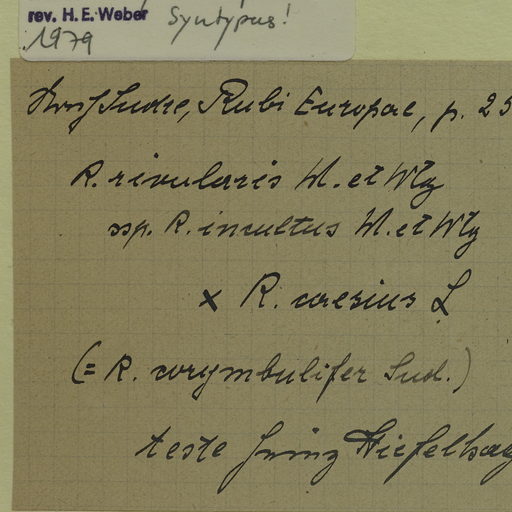 rev. H. E. Weber Syntypus!
1979
Sudre, Rubi Europae, p. 25
R. rivularis M. et Wtg
ssp. R. incultus M. et Wtg
x R. caesius L
(= R. corymbulifer Sud.)
teste